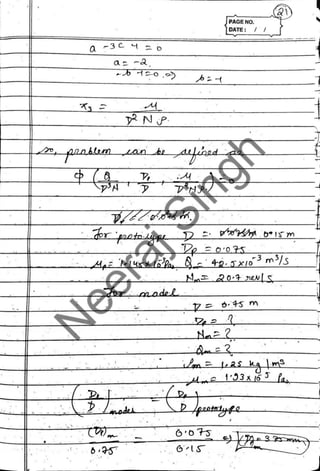 21
PAGE NO.
DATE: / /
a - 3c - 1 = 0
a = -2.
-b - 1 = 0 ⇒ b = -1
π₃ = μ / D² N ρ.
so, problem can be defined as
φ ( Q / D³N , D_p / D , μ / D²Nρ ) = 0
for prototype D = 0.15 m
D_p = 0.075
Q = 42.5 × 10⁻³ m³/s
N_m = 20.7 rev/s
for model
D = 0.45 m
D_p = ?
N_m = ?
Q_m = ?
ρ_m = 1.25 kg / m³
μ_m = 1.93 × 10⁻⁵ Pa.
( D_p / D )model = ( D_p / D )prototype
(D_p)m / 0.45 = 0.075 / 0.15
Neeraj Singh